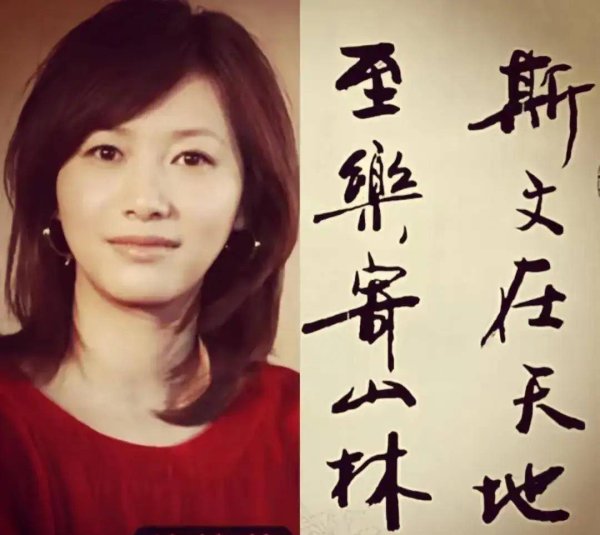 斯文在天地
至樂寄山林